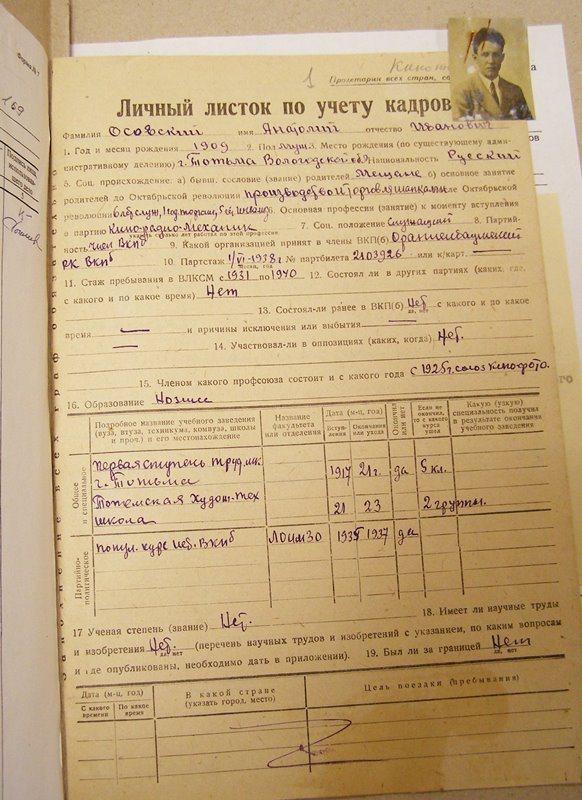 Форма № 7
169
1
Пролетарии всех стран, со
Личный листок по учету кадров
Фамилия Осовский имя Анатолий отчество Иванович
1. Год и месяц рождения 1909 2. Пол Муж 3. Место рождения (по существующему адми-
нистративному делению) г. Тотьма Вологодской об Национальность Русский
5. Соц. происхождение: а) бывш. сословие (звание) родителей Мещане б) основное занятие
родителей до Октябрьской революции производство и торговля шапками после Октябрьской
революции 6. Основная профессия (занятие) к моменту вступления
в партию Кино-радио-Механик 7. Соц. положение Служащий 8. Партий-
указать сколько лет работал по этой профессии
ность Член ВКПб 9. Какой организацией принят в члены ВКП(б) Ораниенбаумский
РК ВКПб 10. Партстаж 1/VI-1938 г. № партбилета 2103926 или к/карт. —
месяц, год
11. Стаж пребывания в ВЛКСМ с 1931 по 1940 12. Состоял ли в других партиях (каких, где,
с какого и по какое время) Нет
13. Состоял-ли ранее в ВКП(б) Нет с какого и по какое
да, нет
время — и причины исключения или выбытия —
— 14. Участвовал-ли в оппозициях (каких, когда) Нет.
15. Членом какого профсоюза состоит и с какого года с 1925 г. союз кинофото.
16. Образование Низшее
Подробное название учебного заведения (вуза, втуза, техникума, комвуза, школы и проч.) и его местонахождение
Название факультета или отделения
Дата (м-ц, год)
Вступления
Окончания или ухода
Окончил или нет
Если не окончил, то с какого курса ушел
Какую (узкую) специальность получил в результате окончания учебного заведения
Общее и специальное
Первая ступень труд. шк. 1917 21 г. да 5 кл.
г. Тотьма
Тотемская Худож. тех 21 23 2 группы.
школа
Партийно-политическое
ист. ВКПб 1937 да
17 Ученая степень (звание) Нет. 18. Имеет ли научные труды
и изобретения Нет. (перечень научных трудов и изобретений с указанием, по каким вопросам
да, нет
и где опубликованы, необходимо дать в приложении). 19. Был ли за границей Нет
да, нет
Дата (м-ц, год)
С какого времени
По какое время
В какой стране (указать город, место)
Цель поездки (пребывания)